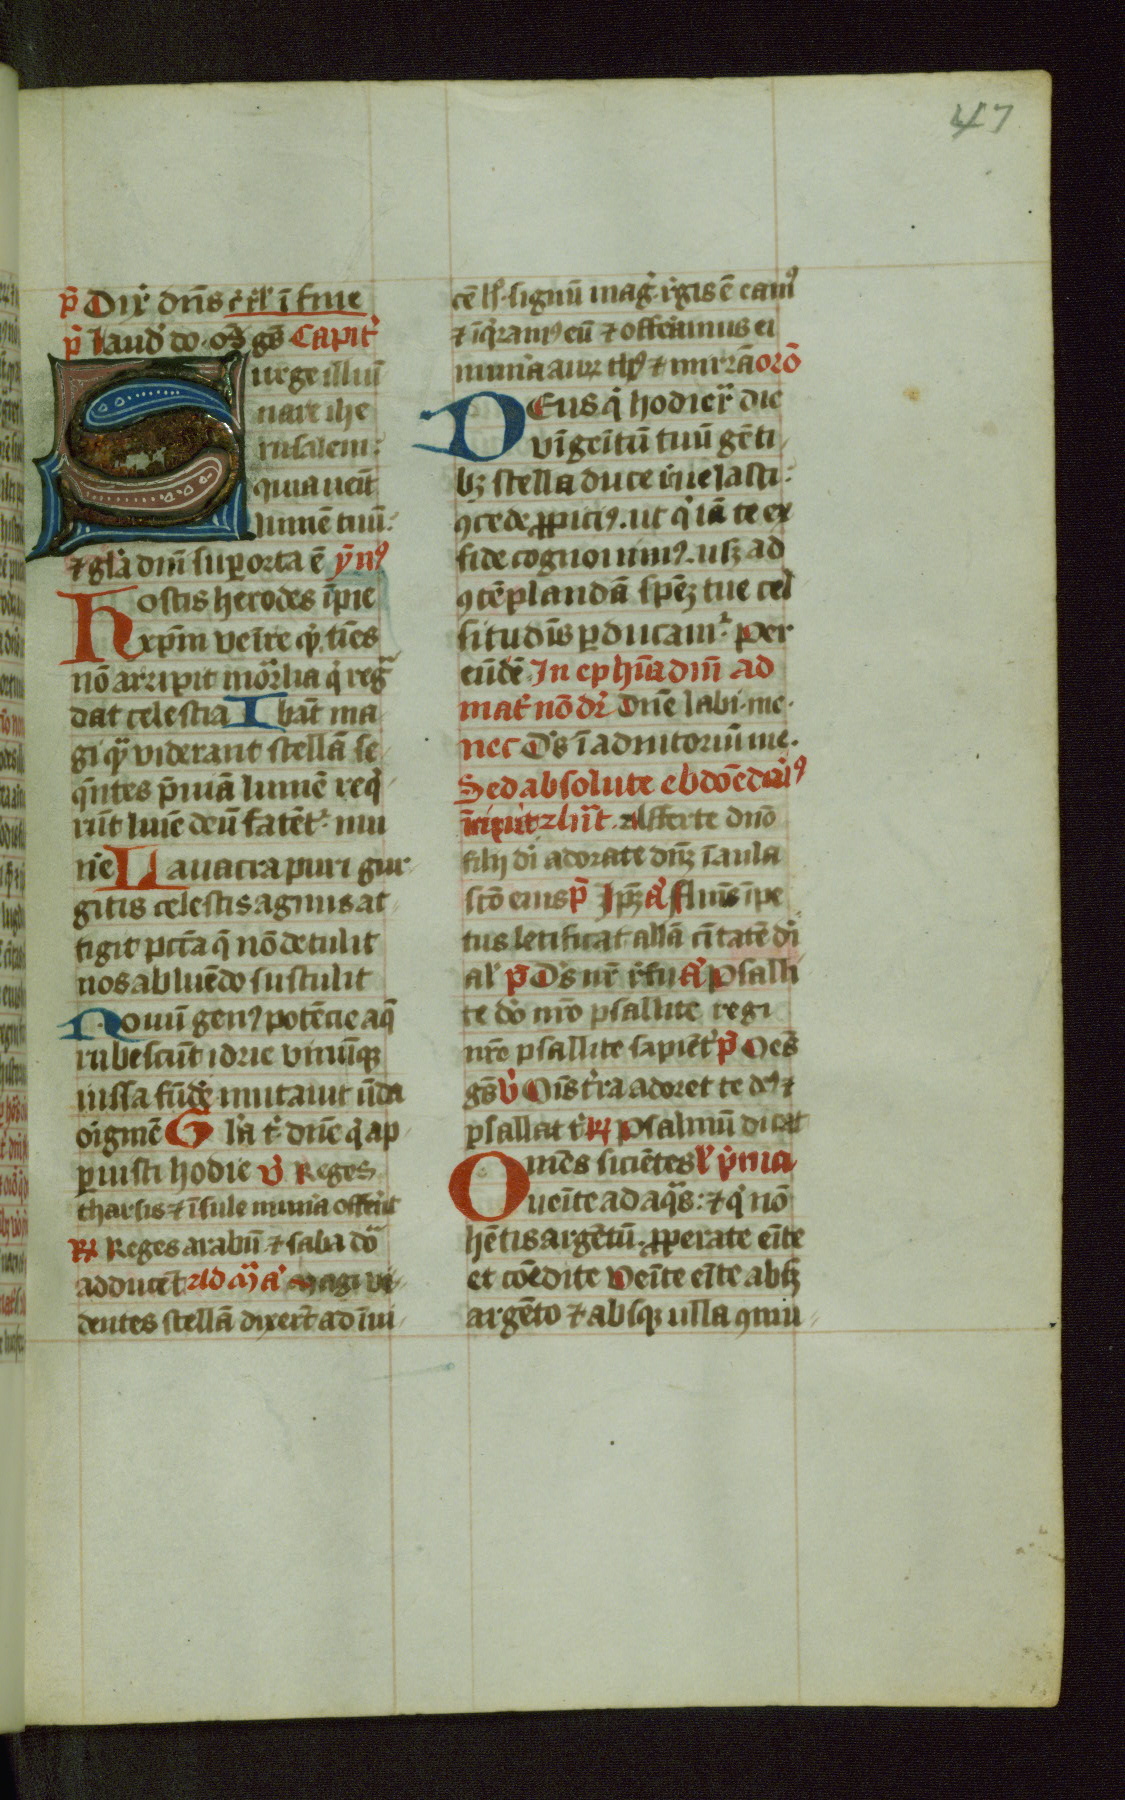 47
p̄ Dix̾ dn̄s c̄ rl̾ ī fine
p̄ laud̾ do. oēs gēs Capit̾
Surge illūi
nare ihe
rusalem:
quia uēit
lumē tuū:
⁊ gl̄a dnī suꝑ orta ē ẏnꝰ
Hostis herodes īpie
xp̄m veīre qͥ times
nō arripit mōr̄lia qͥ reg̾
dat celestia Ibāt ma
gi qͣ viderant stellā se
qn̄tes p̄uiā lumē reqͥ
rūt luīe deū fatēt̾ mu
nē̄ Lauacra puri gur
gitis celestis agnus at
tigit pctā q̄ nō detulit
nos abluēdo sustulit
Nouū genꝰ potēcie aq̄
rubescūt idrie vinūqꝫ
iussa fūde̾ mutauit ūda
oīginē Gl̄a t̾ dn̄e qͥ ap
ꝑuisti hodie v̾ Reges
tharsis ⁊ īsule mun̾a offēr̄t
℞ Reges arabū ⁊ saba dō
adducēt Ad m̄ a̾ Magi vi
dentes stellā dixer̄t ad īui
cē ls̾ signū mag̾ r̾gis ē eamꝰ
⁊ iq̾ramꝰ eū ⁊ offeramus ei
mun̾a auꝝ thꝰ ⁊ mirrā orō
DEus qͥ hodier̄ die
vīgeitū tuū gēti
bꝫ stella duce r̾uelasti:
ꝯcede ꝓpiciꝰ. ut qͥ iā te ex
fide cognouimꝰ. usqꝫ ad
ꝯtēplandā spēꝫ tue cel
situdīs ꝑducam̾ Per
eūdē In ephīa dnī ad
mat̾ nō dr̾ Dn̄e labi. me.
nec D's ī adiutoriū me.
Sed absolute ebdōedariꝰ
īcipit Ant̄. Afferte dn̄o
filij di̾ adorate dn̄ꝫ ī aula
scō eius p̄ Ip̄ꝫ a̾ Flum̄s īpe
tus letificat all̄a ciuitatē di̾
al̾ p̄ D's nr̄ r̾fu a̾ Psalli
te dō nr̄o psallite regi
nr̄o psallite sapiēt̾ p̄ Oēs
gēs v̾ Oīs t̾ra adoret te d's ⁊
psallat t̾ ℞ Psalmū dicat
Omēs sicientes l̾ p̾ma
Ueīte ad aqͣs: ⁊ qͥ nō
hētis argētū. ꝓperate eīte
et cōedite Ueīte eīte absqꝫ
argēto ⁊ absqꝫ ulla ꝯmū